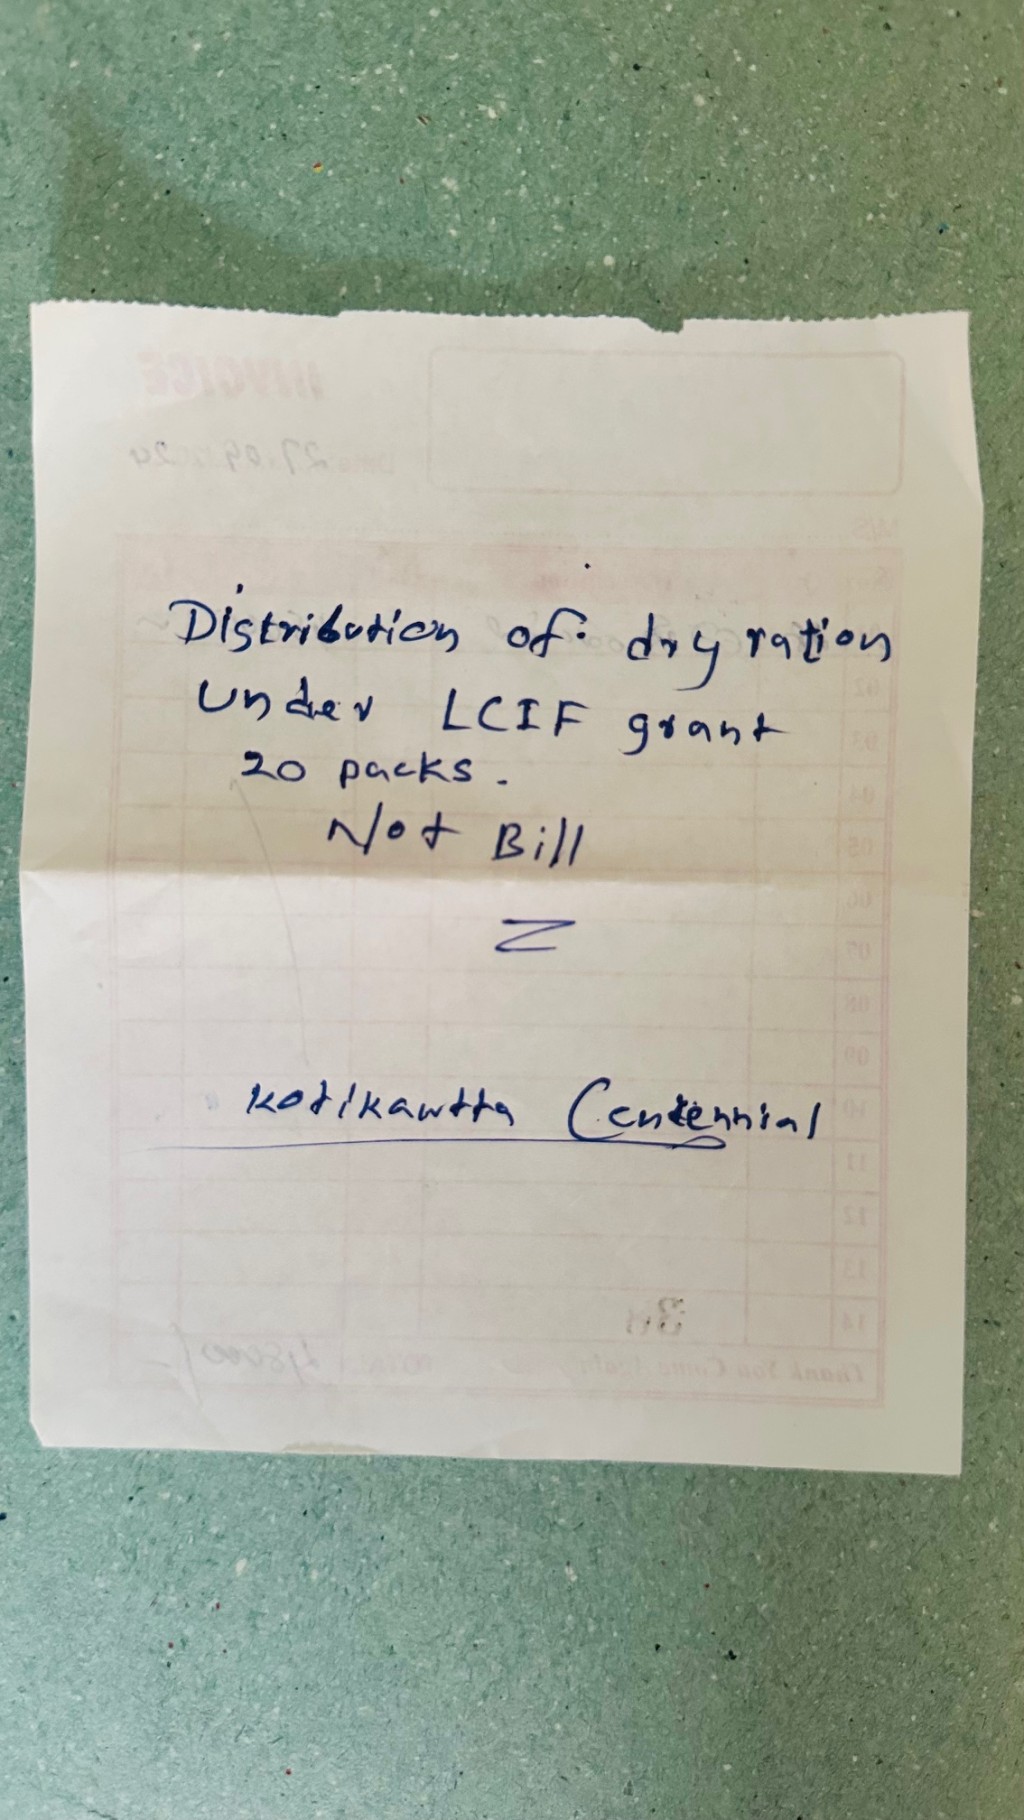 Distribution of dry ration
under LCIF grant
20 packs.
Not Bill
Kotikawtta Centennial